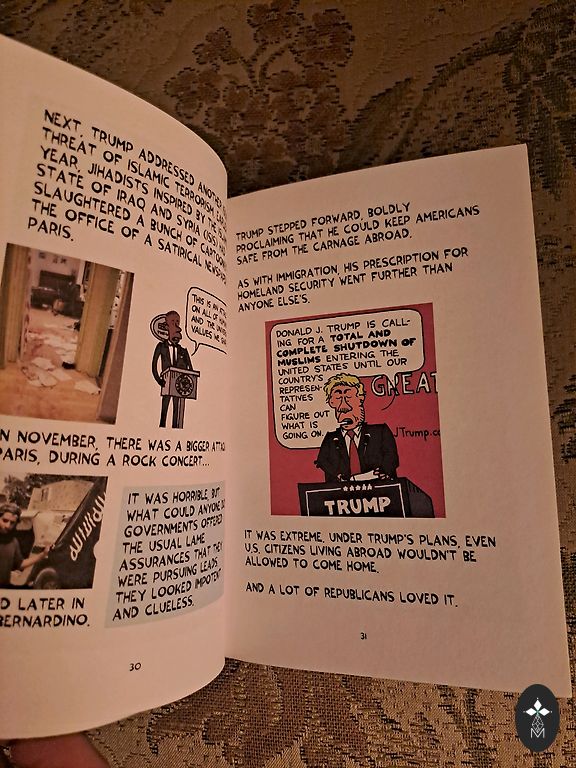 NEXT, TRUMP ADDRESSED
THREAT OF ISLAMIC TERRORISM.
YEAR, JIHADISTS INSPIRED BY THE
STATE OF IRAQ AND SYRIA (ISIS)
SLAUGHTERED A BUNCH OF
THE OFFICE OF A SATIRICAL
PARIS.
THIS IS AN
ON ALL OF
AND THE
VALUES WE
IN NOVEMBER, THERE WAS A BIGGER
PARIS, DURING A ROCK CONCERT...
IT WAS HORRIBLE, BUT
WHAT COULD ANYONE
GOVERNMENTS OFFERED
THE USUAL LAME
ASSURANCES THAT
WERE PURSUING LEADS.
THEY LOOKED IMPOTENT
AND CLUELESS.
LATER IN
BERNARDINO.
30
TRUMP STEPPED FORWARD, BOLDLY
PROCLAIMING THAT HE COULD KEEP AMERICANS
SAFE FROM THE CARNAGE ABROAD.
AS WITH IMMIGRATION, HIS PRESCRIPTION FOR
HOMELAND SECURITY WENT FURTHER THAN
ANYONE ELSE'S.
DONALD J. TRUMP IS CALL-
ING FOR A TOTAL AND
COMPLETE SHUTDOWN OF
MUSLIMS ENTERING THE
UNITED STATES UNTIL OUR
COUNTRY'S
REPRESEN-
TATIVES
CAN
FIGURE OUT
WHAT IS
GOING ON.
GREAT
JTrump.co
TRUMP
IT WAS EXTREME. UNDER TRUMP'S PLANS, EVEN
U.S. CITIZENS LIVING ABROAD WOULDN'T BE
ALLOWED TO COME HOME.
AND A LOT OF REPUBLICANS LOVED IT.
31
M